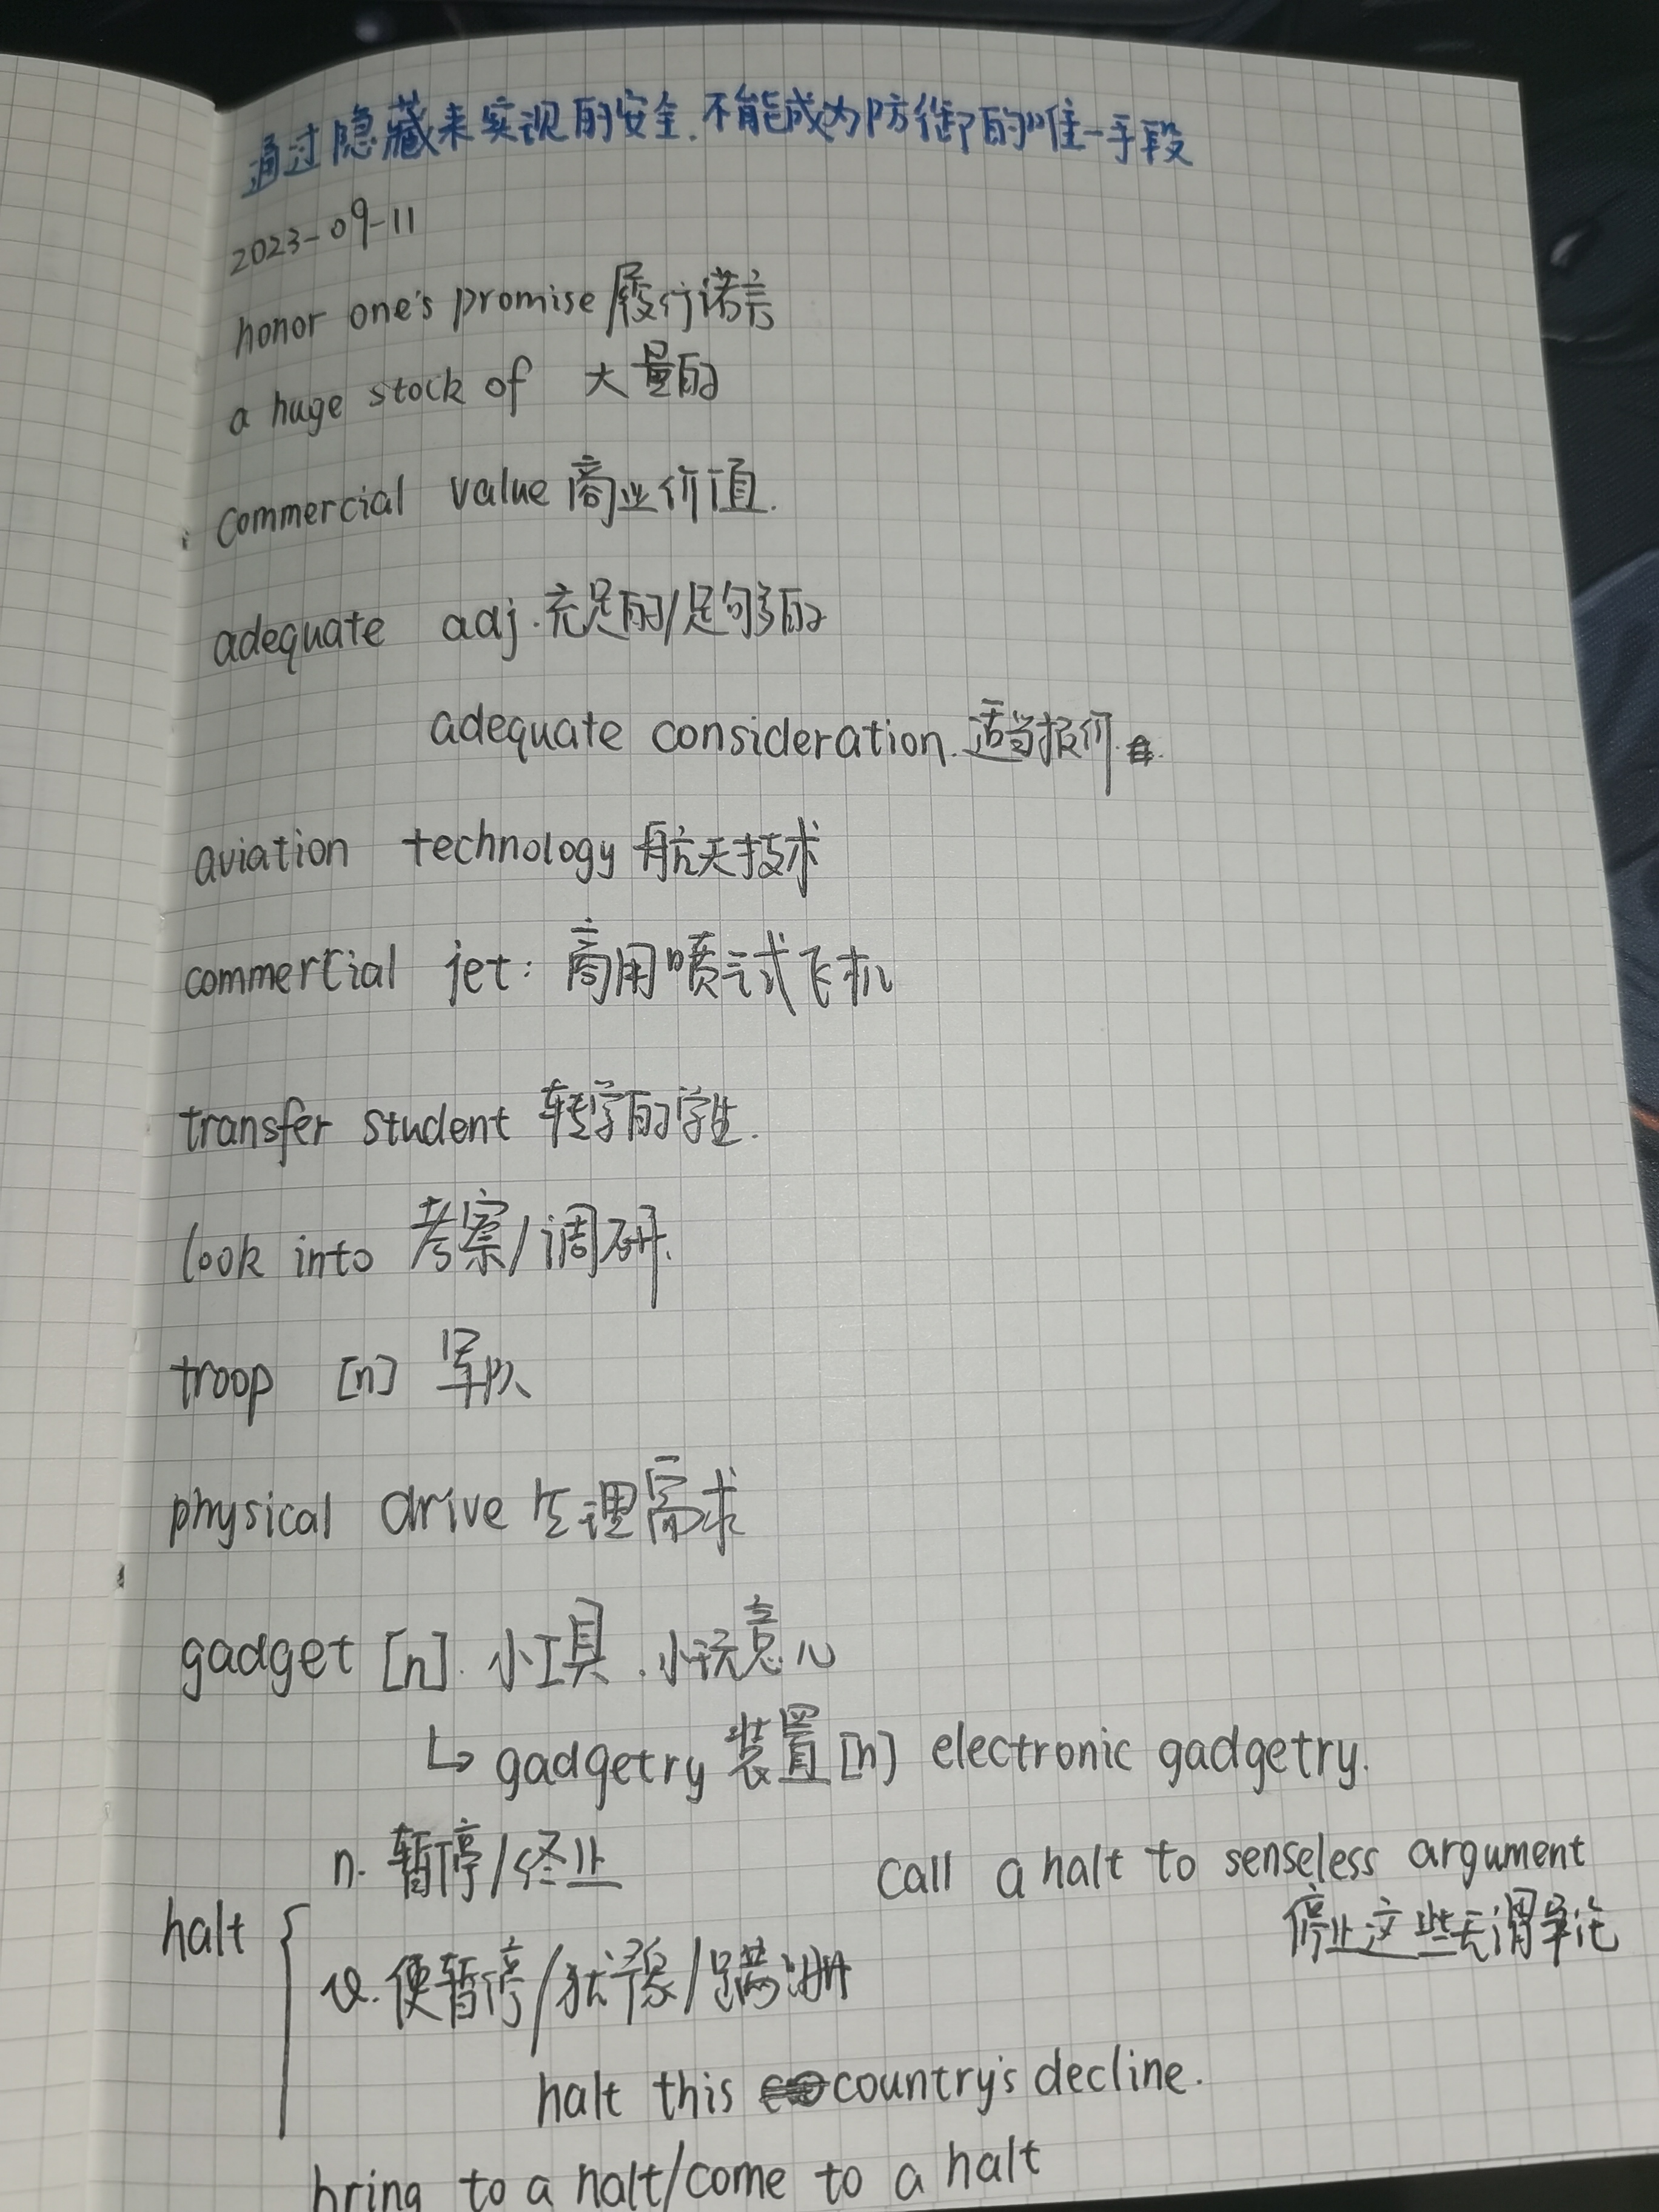 通过隐藏来实现的安全.不能成为防御的唯一手段
2023-09-11
honor one's promise 履行诺言
a huge stock of 大量的
commercial value 商业价值.
adequate adj.充足的/足够的
adequate consideration.适当报价.
aviation technology 航天技术
commertial jet: 商用喷试飞机
transfer student 转学的学生.
look into 考察/调研.
troop [n] 军队
physical drive 生理需求
gadget [n]. 小工具.小玩意儿
↳ gadgetry 装置[n] electronic gadgetry.
n. 暂停/终止 call a halt to senseless argument
halt 停止这些无谓争论
v. 使暂停/犹豫/蹒跚
halt this country's decline.
bring to a halt/come to a halt